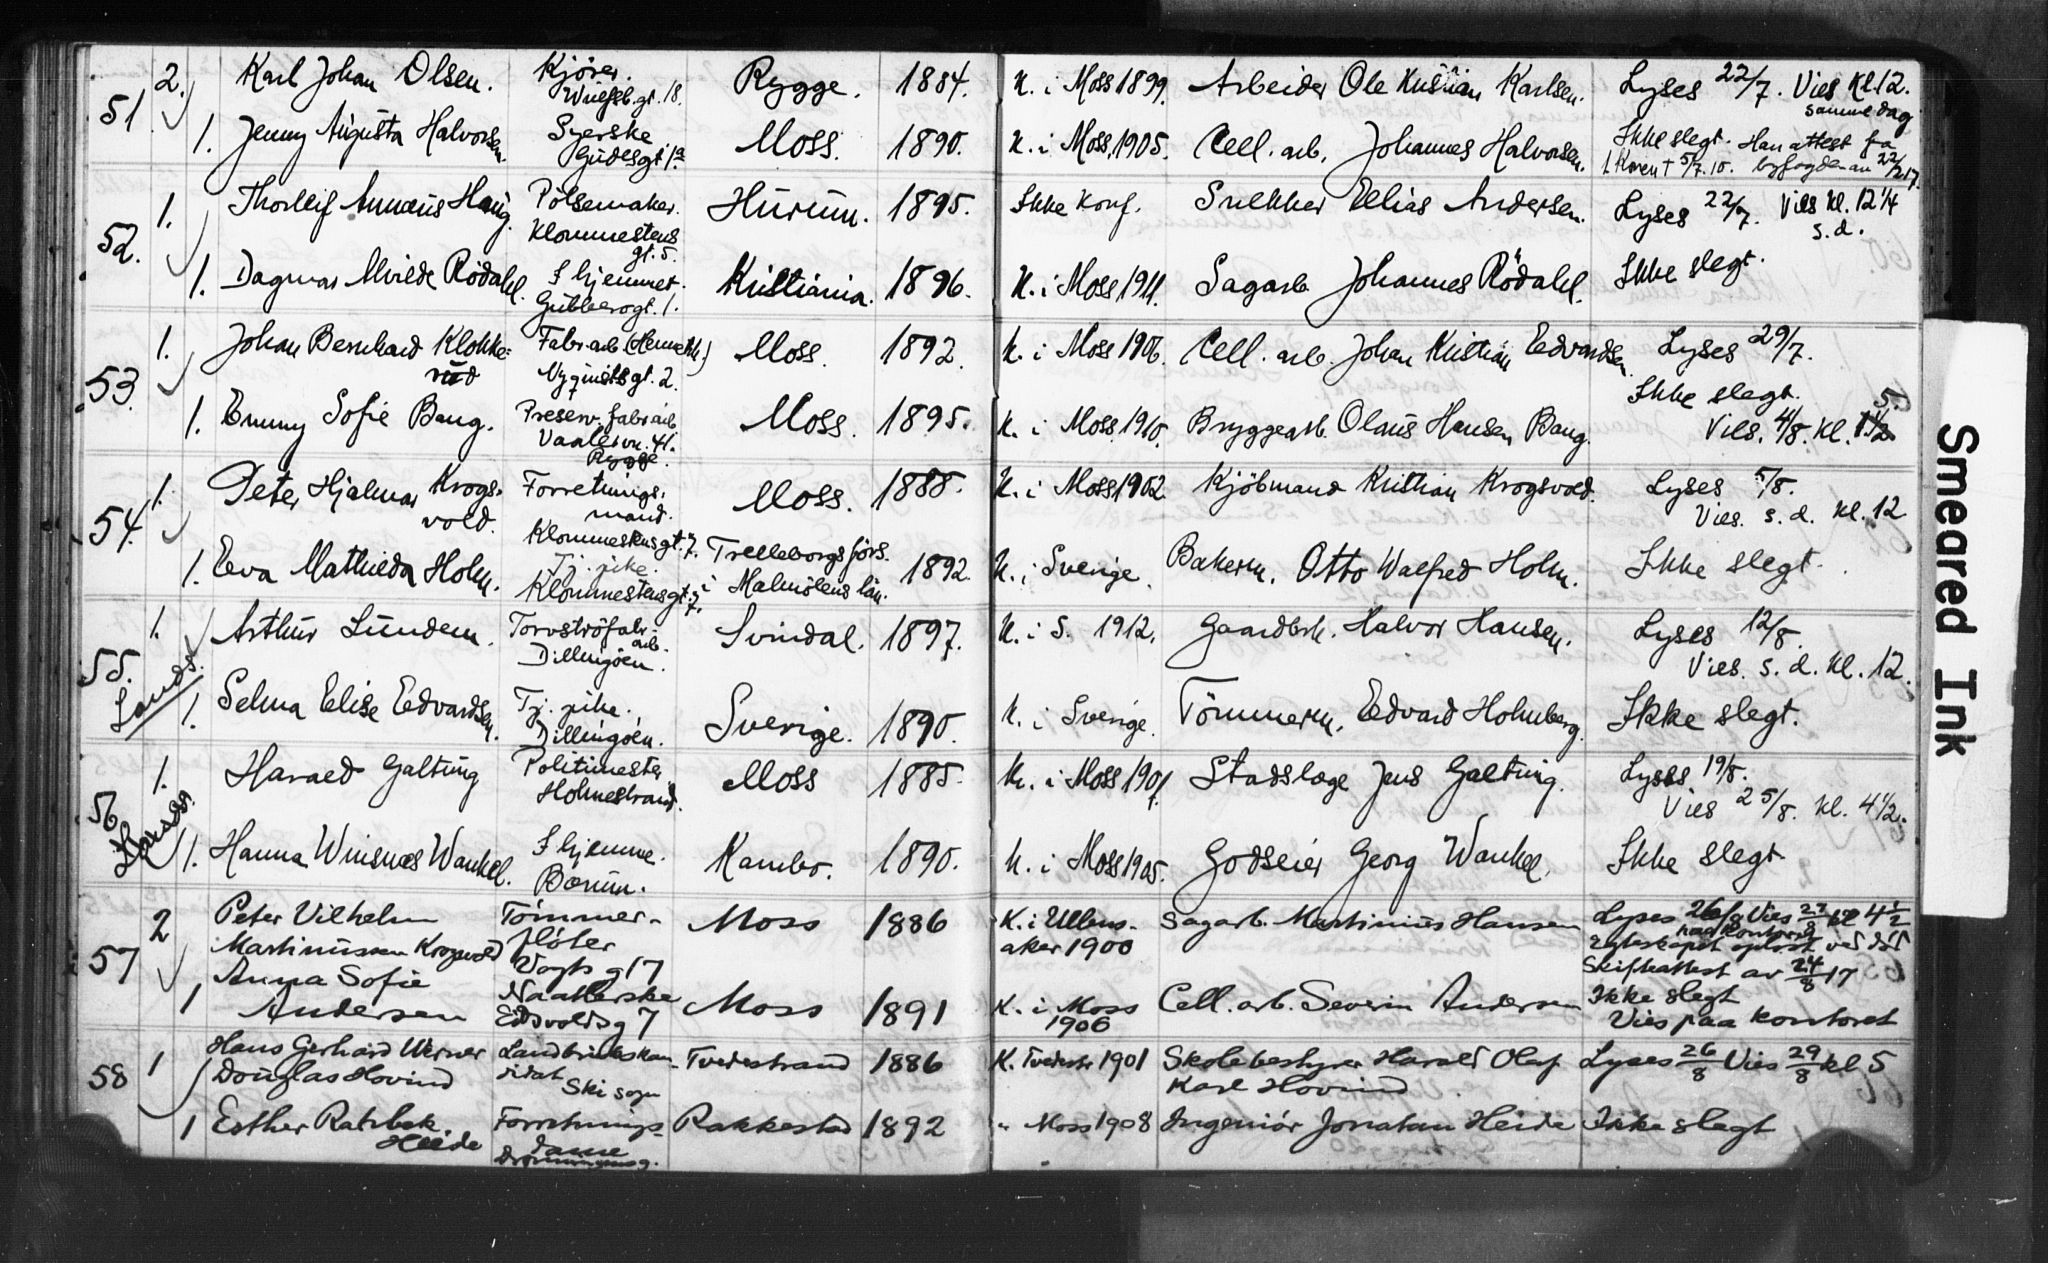 51. 2. Karl Johan Olsen. Kjörer. Rygge. 1884. K. i Moss 1899. Arbeider Ole Kristian Karlsen. Lyses 22/7. Vies Kl. 12.
gt. 18. samme dag
1. Jenny Augusta Halvorsen. Syerske Moss. 1890. K. i Moss, 1905. Cell. arb. Johannes Halvorsen. Ikke slegt. Han attest fra
Gudesgt 1a 5/7. 10. byfogden av 22/2 17.
52. 1. Thorleif Haug. Pölsemaker. Hurum. 1895. Ikke Konf. Snekker Elias Andersen. Lyses 22/7. Vies Kl. 12 1/4
Klommestens s. d.
gt. 5.
1. Dagmar Alvilde Rödahl. I hjemmet. Kristiania. 1896. K. i Moss 1911. Sagarb. Johannes Rödahl. Ikke slegt.
Gubberogt. 1.
53. 1. Johan Bernhard Klokke= Fabr. arb. Moss. 1892. K. i Moss 1906. Cell. arb. Johan Kristian Edvardsen. Lyses 29/7.
rud Nyquistsgt. 2. Ikke slegt.
1. Emmy Sofie Bang. Preserv. fabr. arb. Moss. 1895. K. i Moss. 1910. Bryggearb. Olaus Hansen Bang. Vies. 4/8. Kl. 5.
Vaalervn. 41.
Rygge.
54. 1. Peter Hjalmar Krogs- Forretnings- Moss. 1888. K. i Moss 1902. Kjöbmand Kristian Krogsvold. Lyses 5/8.
vold. mand. Vies. s. d. Kl. 12
Klommestensgt. 7.
1. Eva Mathilda Holm. Tj. pike. Trelleborgs förs. 1892. K. i Sverige. Bakerm. Otto Walfred Holm. Ikke slegt.
Klommestensgt. 7. i Malmöhus län.
55. 1. Arthur Lundem. Torvströfabr. Svindal. 1897. K. i S. 1912. Gaardbr. Halvor Hansen. Lyses 12/8.
arb.
Landss. Dillingöen. Vies. s. d. Kl. 12.
1. Selma Elise Edvardsen. Tj. pike. Sverige. 1890. K. i Sverige. Tömmerm. Edvard Holmberg. Ikke slegt.
Dillingöen.
56 1. Harald Galtung Politimester Moss 1885. K. i Moss 1901. Stadslæge Jens Galtung. Lyses 19/8.
Landss. Holmestrand. Vies 25/8. Kl. 4 1/2.
1. Hanna Winsnes Wankel. I hjemme. Kambo. 1890. K. i Moss 1905. Godseier Georg Wankel. Ikke slegt
Bærum.
57 2 Peter Vilhelm Tömmer- Moss 1886 K. i Ullens- Sagarb. Martinius Hansen Lyses 26/8 Vies 27/8 kl 4 1/2
paa kontoret
Martinussen Krogsvold flöter aker 1900 Egteskapet oplöst ved död
Vogts g 17 Skifteattest av 24/8 17
1 Anna Sofie Naatlerske Moss 1891 K. i Moss Cell. arb. Severin Andersen Ikke slegt
Andersen Eidsvoldsg 7 1906 Vies paa Kontoret
58 1 Hans Gerhard Werner Landbrukskan- Tvedestrand 1886 K. Tvedestr 1901 Skolebestyrer Harald Olaf Lyses 26/8 Vies 29/8 kl 5
Douglas Hovind didat Ski sogn Karl Hovind
1 Esther Ratzbek Forretnings- Rakkestad 1892 " Moss 1908 Ingeniör Jonatan Heide Ikke slegt
Heide dame
Dronningensg.
Smeared Ink